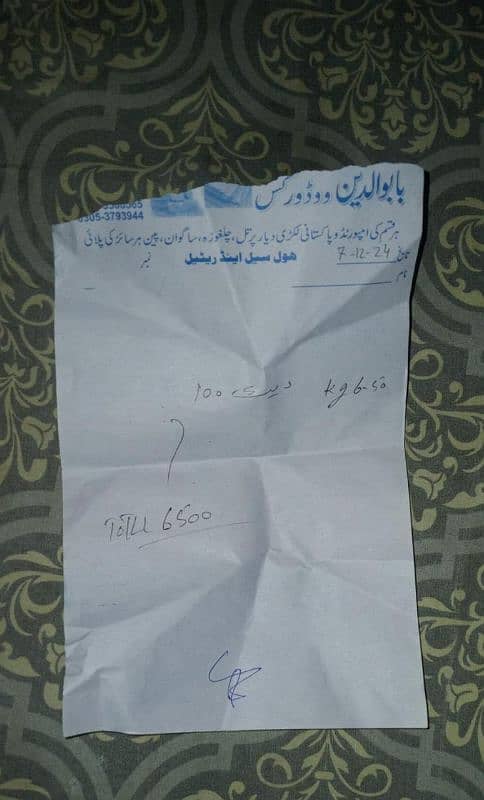 بابوالدین ووڈ ورکس
0305-3793944
ہر قسم کی امپورٹڈ و پاکستانی لکڑی دیار، پرتل، چلغوزہ، ساگوان، پین ہر سائز کی پلائی
ھول سیل اینڈ ریٹیل
نمبر
تاریخ 7-12-24
نام
100 Kg 6-50
Total 6500